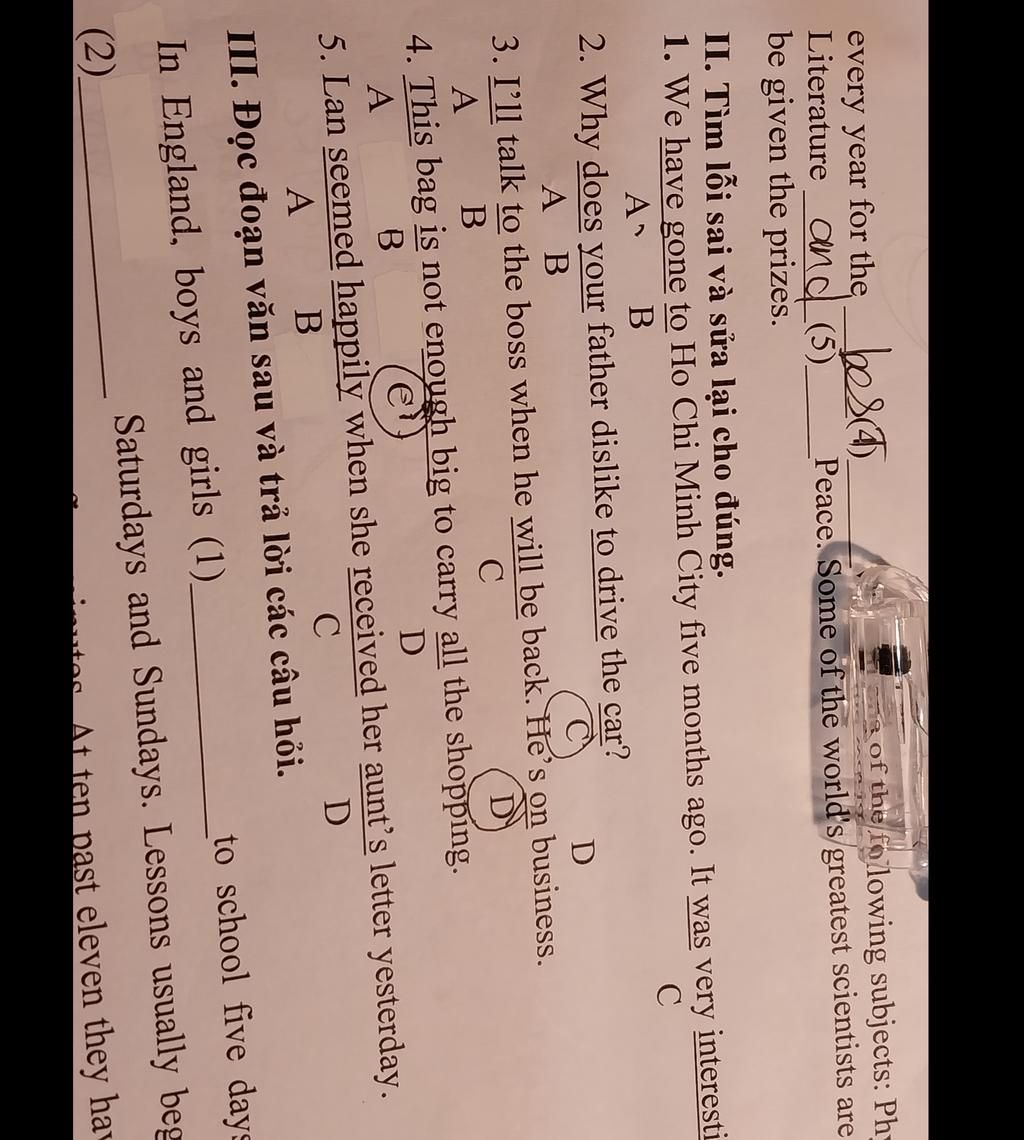 every year for the best (4)______ of the following subjects:
Literature and (5)______ Peace. Some of the world's greatest scientists are
be given the prizes.
II. Tìm lỗi sai và sửa lại cho đúng.
1. We have gone to Ho Chi Minh City five months ago. It was very
A B C
2. Why does your father dislike to drive the car?
A B C D
3. I'll talk to the boss when he will be back. He's on business.
A B C D
4. This bag is not enough big to carry all the shopping.
A B C D
5. Lan seemed happily when she received her aunt's letter yesterday.
A B C D
III. Đọc đoạn văn sau và trả lời các câu hỏi.
In England, boys and girls (1)______ to school five days
(2)______ Saturdays and Sundays. Lessons usually
At ten past eleven they